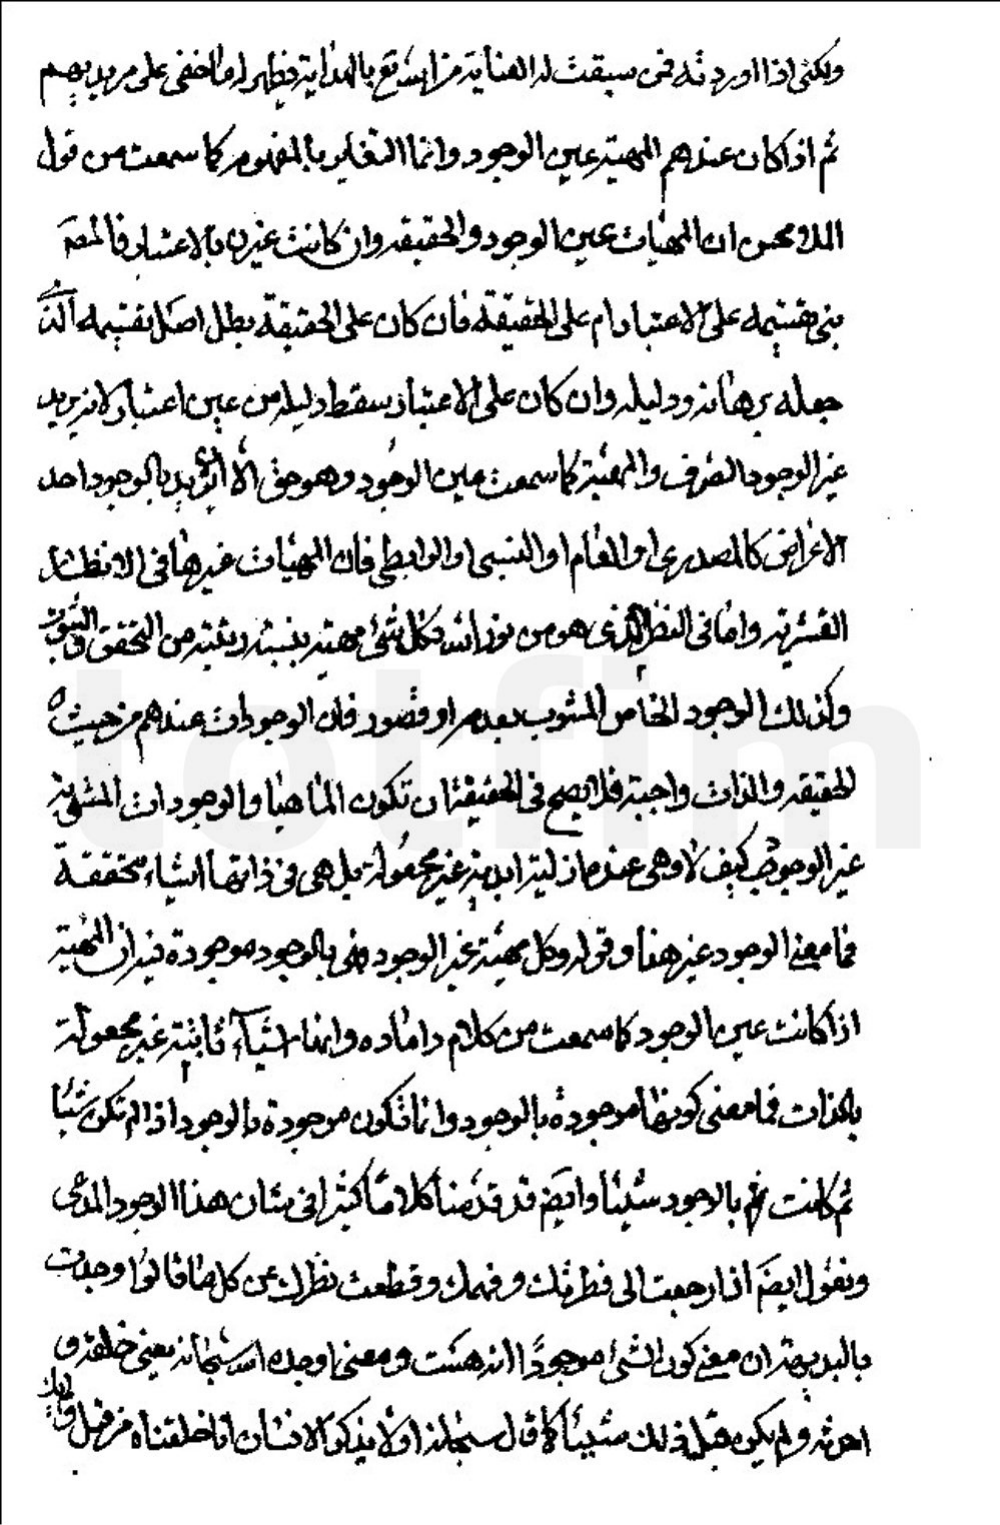 ولكنى اذا اوردته فمن سبقت له العناية من الله يقع بالهداية فيظهر له ما اخفى على مريديهم
ثم اذا كان عندهم المهية عين الوجود وانما التغاير بالمفهوم كما سمعت من قول
الملا محسن ان المهيات عين الوجود والحقيقة وان كانت غيره بالاعتبار فالمصَ
بنى تقسيمه على الاعتبار ام على الحقيقة فان كان على الحقيقة بطل اصل تقسيمه الذى
جعله برهانه ودليله وان كان على الاعتبار سقط دليله من عين اعتباره لانه يريد
غير الوجود الصرف والمهية كما سمعت عين الوجود وهو حق الا ان يريد بالوجود احد
الاغراض كالمصدرى او العام او النسبى او الرابطى فان المهيات غيرها فى الانظار
القشرية واما فى النظر الذى هو من نور الله فكل شىء مهيته بنسبة رتبته من التحقق والثبوت
وكذلك الوجود الخاص المشوب بعدم او قصور فان الوجودات عندهم من حيث
الحقيقة والذات واجبة فلا يصح فى الحقيقة ان تكون الماهيات والوجودات المشوبة
غير الوجود كيف لا وهى عندهم ازلية ابدية غير مجعولة بل هى فى ذاتها اشياء متحققة
فما معنى الوجود غير هذا وقوله وكل مهية غير الوجود فهى بالوجود موجودة فيه ان المهية
اذا كانت عين الوجود كما سمعت من كلام داماده وانها اشياء ثابتة غير مجعولة
بالذات فما معنى كونها موجودة بالوجود وانما تكون موجودة بالوجود اذا لم تكن شيئا
ثم كانت بالوجود شيئا وايضَ قد قدمنا كلاما كثيرا فى شان هذا الوجود المدعى
ونقول ايضَ اذا رجعت الى فطرتك وفهمك وقطعت نظرك عن كل ما قالوا وجدت
بالبديهة ان معنى كون الشىء موجودا انه هست ومعنى اوجده الله سبحانه يعنى خلقه و
احدثه ولم يكن قبل ذلك شيئا كما قال سبحانه اولا يذكر الانسان انا خلقناه من قبل ولم يك